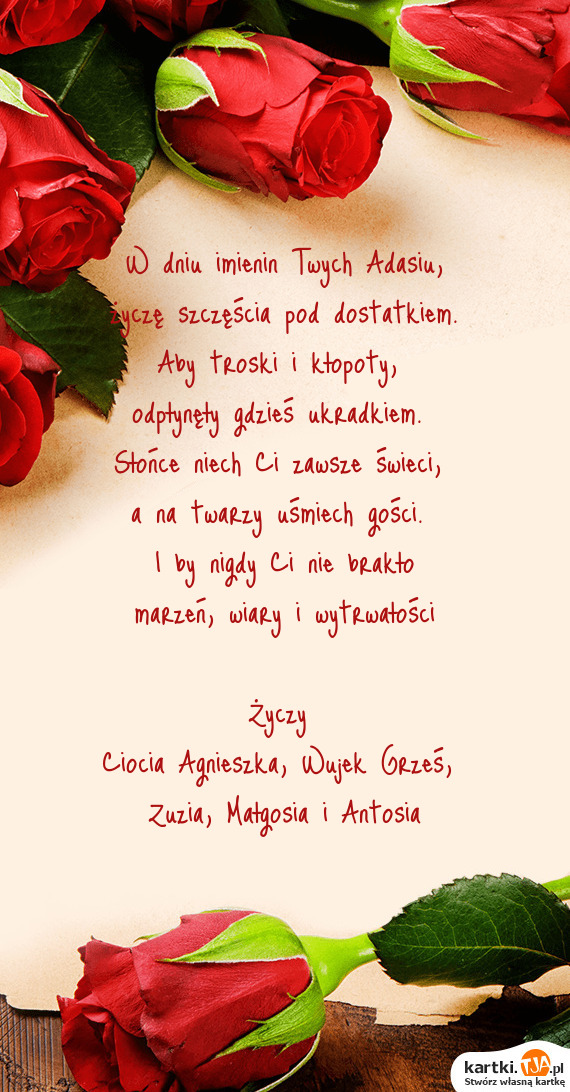 W dniu imienin Twych Adasiu,
życzę szczęścia pod dostatkiem.
Aby troski i kłopoty,
odpłynęły gdzieś ukradkiem.
Słońce niech Ci zawsze świeci,
a na twarzy uśmiech gości.
I by nigdy Ci nie brakło
marzeń, wiary i wytrwałości
Życzy
Ciocia Agnieszka, Wujek Grześ,
Zuzia, Małgosia i Antosia
kartki.TJA.pl
Stwórz własną kartkę